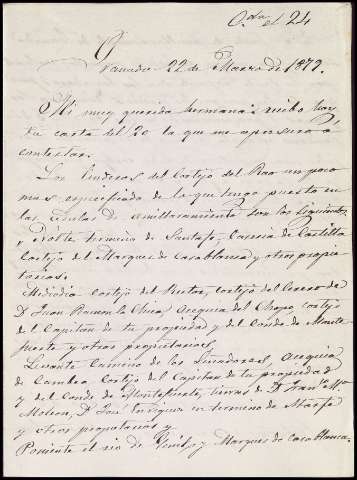 Cda el 24
Granada 22 de Marzo de 1879.
Mi muy querida hermana: recibo hoy
tu carta del 20 la que me apresuro á
contestar.
Los linderos del Cortijo del Rao un poco
mas especificado de la que tengo puesto en
las de amillaramiento son los siguientes
Norte termino de Santafe, Caseria de Castilla
Cortijo del Marques de Casablanca y otros propie
tarios.
Mediodia Cortijo del Rector, cortijo del Cerero de
D. Juan Ramon la Chica, Acequia del Chopo, cortijo
del Capitan de tu propiedad y del Conde de Monte
fuerte y otros propietarios.
Levante Camino de los Acequia
de Cambea Cortijo del Capitan de tu propiedad
y del Conde de Montefuerte, tierras de D. Franco Ma
D. José Enriquez en termino de Atarfe
y otros propetarios y
Poniente el rio de Genil, y Marques de Casablanca.